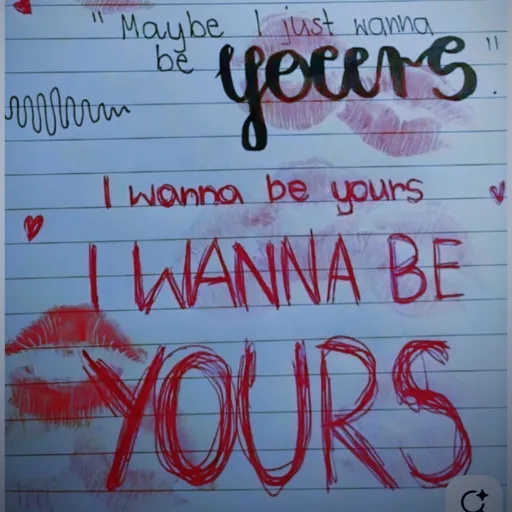 "Maybe I just wanna
be yours".
I wanna be yours
I WANNA BE
YOURS